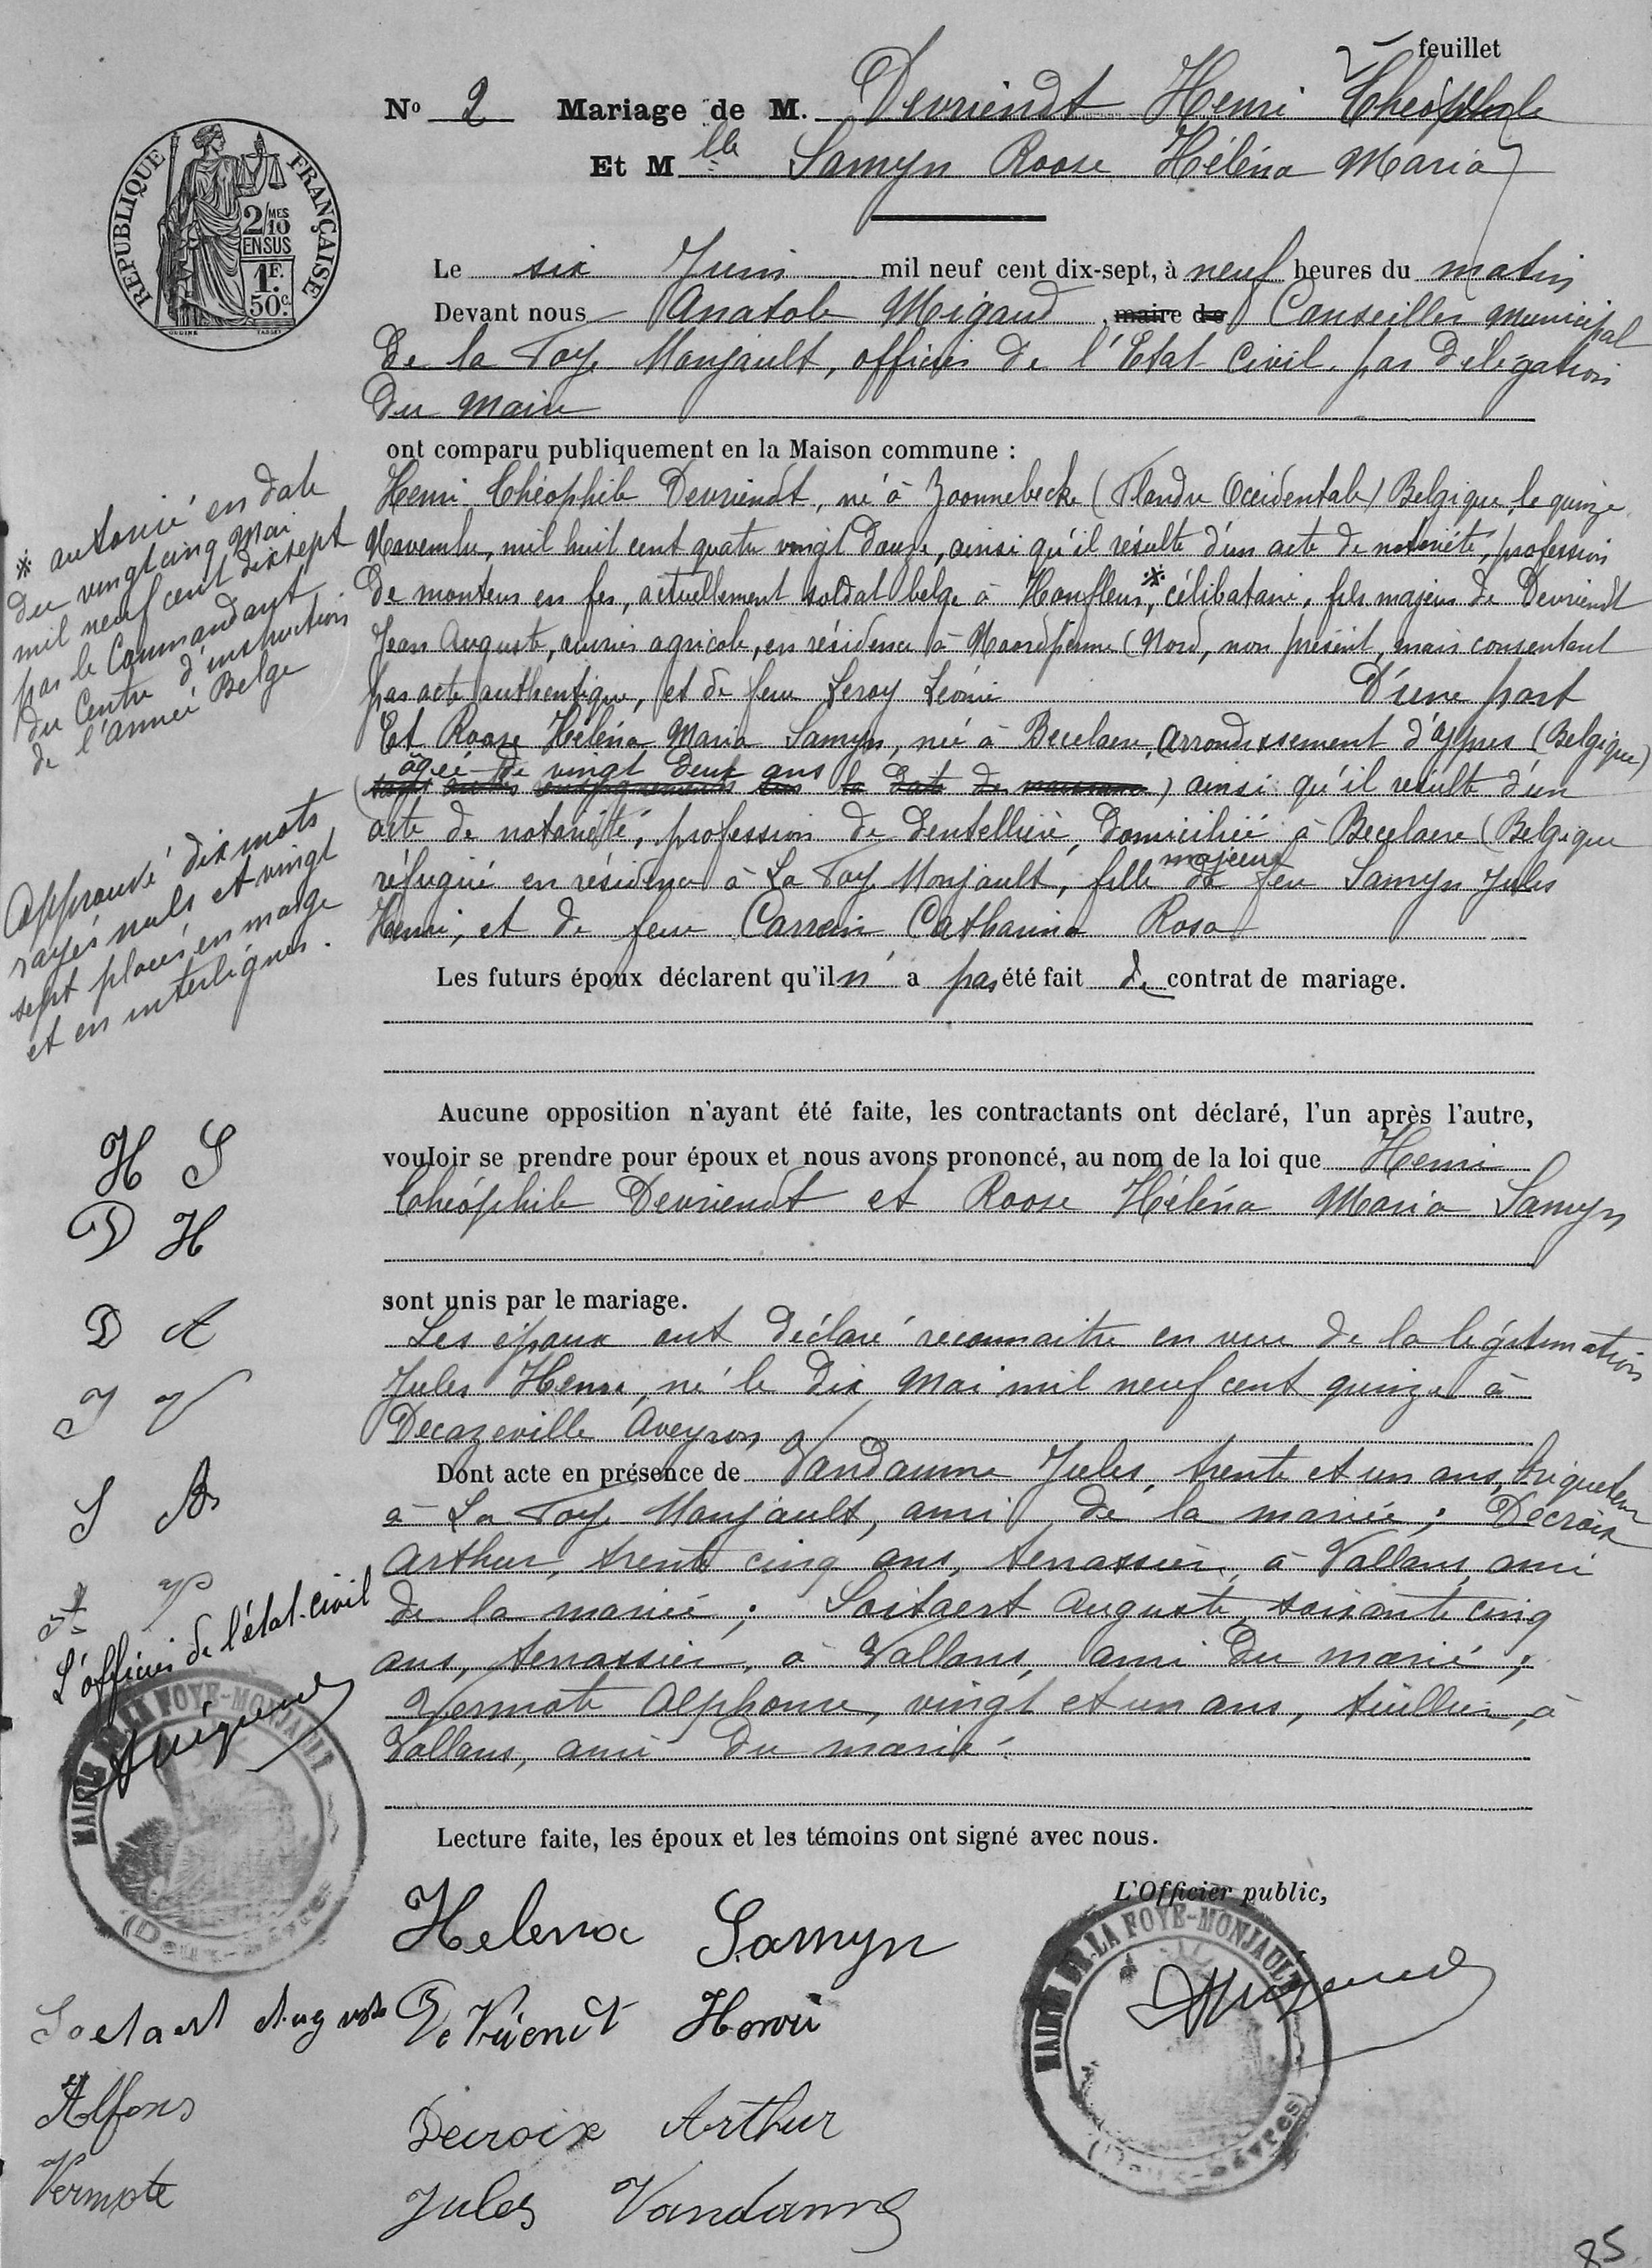 2 feuillet
No 2 Mariage de M. Devriendt Henri Théophile
Et Mlle Samyn Roose Héléna Maria
RÉPUBLIQUE FRANÇAISE
2/10 MES
EN SUS
1F.
50c.
Le six Juin mil neuf cent dix-sept, à neuf heures du matin
Devant nous Anatole Migaud, maire de Conseiller municipal
de la Foye Monjault, officier de l'Etat Civil par délégation
du Maire
ont comparu publiquement en la Maison commune :
Henri Théophile Devriendt, né à Zoonnebecke (Flandre Occidentale) Belgique, le quinze
Novembre, mil huit cent quatre vingt douze, ainsi qu'il résulte d'un acte de notoriété, profession
de monteur en fer, actuellement soldat belge à Honfleur, * célibataire, fils majeur de Devriendt
Jean Auguste, ouvrier agricole, en résidence à Noordpenne (Nord, non présent, mais consentant
par acte authentique, et de feue Leroy Léonie D'une part
Et Roose Héléna Maria Samyn, née à Becelaere, arrondissement d'Ypres (Belgique)
âgée de vingt deux ans
( la date de naissance) ainsi qu'il résulte d'un
acte de notoriété, profession de dentellière, domiciliée à Becelaere (Belgique
réfugiée en résidence à La Foye Monjault, fille majeure de feu Samyn Jules
Henri, et de feue Carrein Catharina Rosa
Les futurs époux déclarent qu'il n'a pas été fait de contrat de mariage.
Aucune opposition n'ayant été faite, les contractants ont déclaré, l'un après l'autre,
vouloir se prendre pour époux et nous avons prononcé, au nom de la loi que Henri
Théophile Devriendt et Roose Héléna Maria Samyn
sont unis par le mariage.
Les époux ont déclaré reconnaitre en vue de la légitimation
Jules Henri, né le dix Mai mil neuf cent quinze à
Decazeville Aveyron
Dont acte en présence de Vandamme Jules, trente et un ans, briqueteur
à La Foye Monjault, ami de la mariée ; Decroix
Arthur, trente cinq ans, terrassier, à Vallans, ami
de la mariée ; Soitaert Auguste, soixante cinq
ans, terrassier, à Vallans, ami du marié ;
Vermote Alphonse, vingt et un ans, tuillier, à
Vallans, ami du marié.
Lecture faite, les époux et les témoins ont signé avec nous.
L'Officier public,
Helena Samyn
De Vriendt Henri
Decroix Arthur
Jules Vandamme
Soetaert August
Alfons
Vermote
* autorisé en date
du vingt cinq Mai
mil neuf cent dix sept
par le Commandant
du Centre d'instruction
de l'armée Belge
Approuvé dix mots
rayés nuls et vingt
sept placés en marge
et en interlignes.
H S
D H
D A
J V
S A
A V
L'officier de l'état-civil
AMigaud
MAIRIE DE LA FOYE-MONJAULT
(Deux-Sèvres)
AMigaud
MAIRIE DE LA FOYE-MONJAULT
(Deux-Sèvres)
85